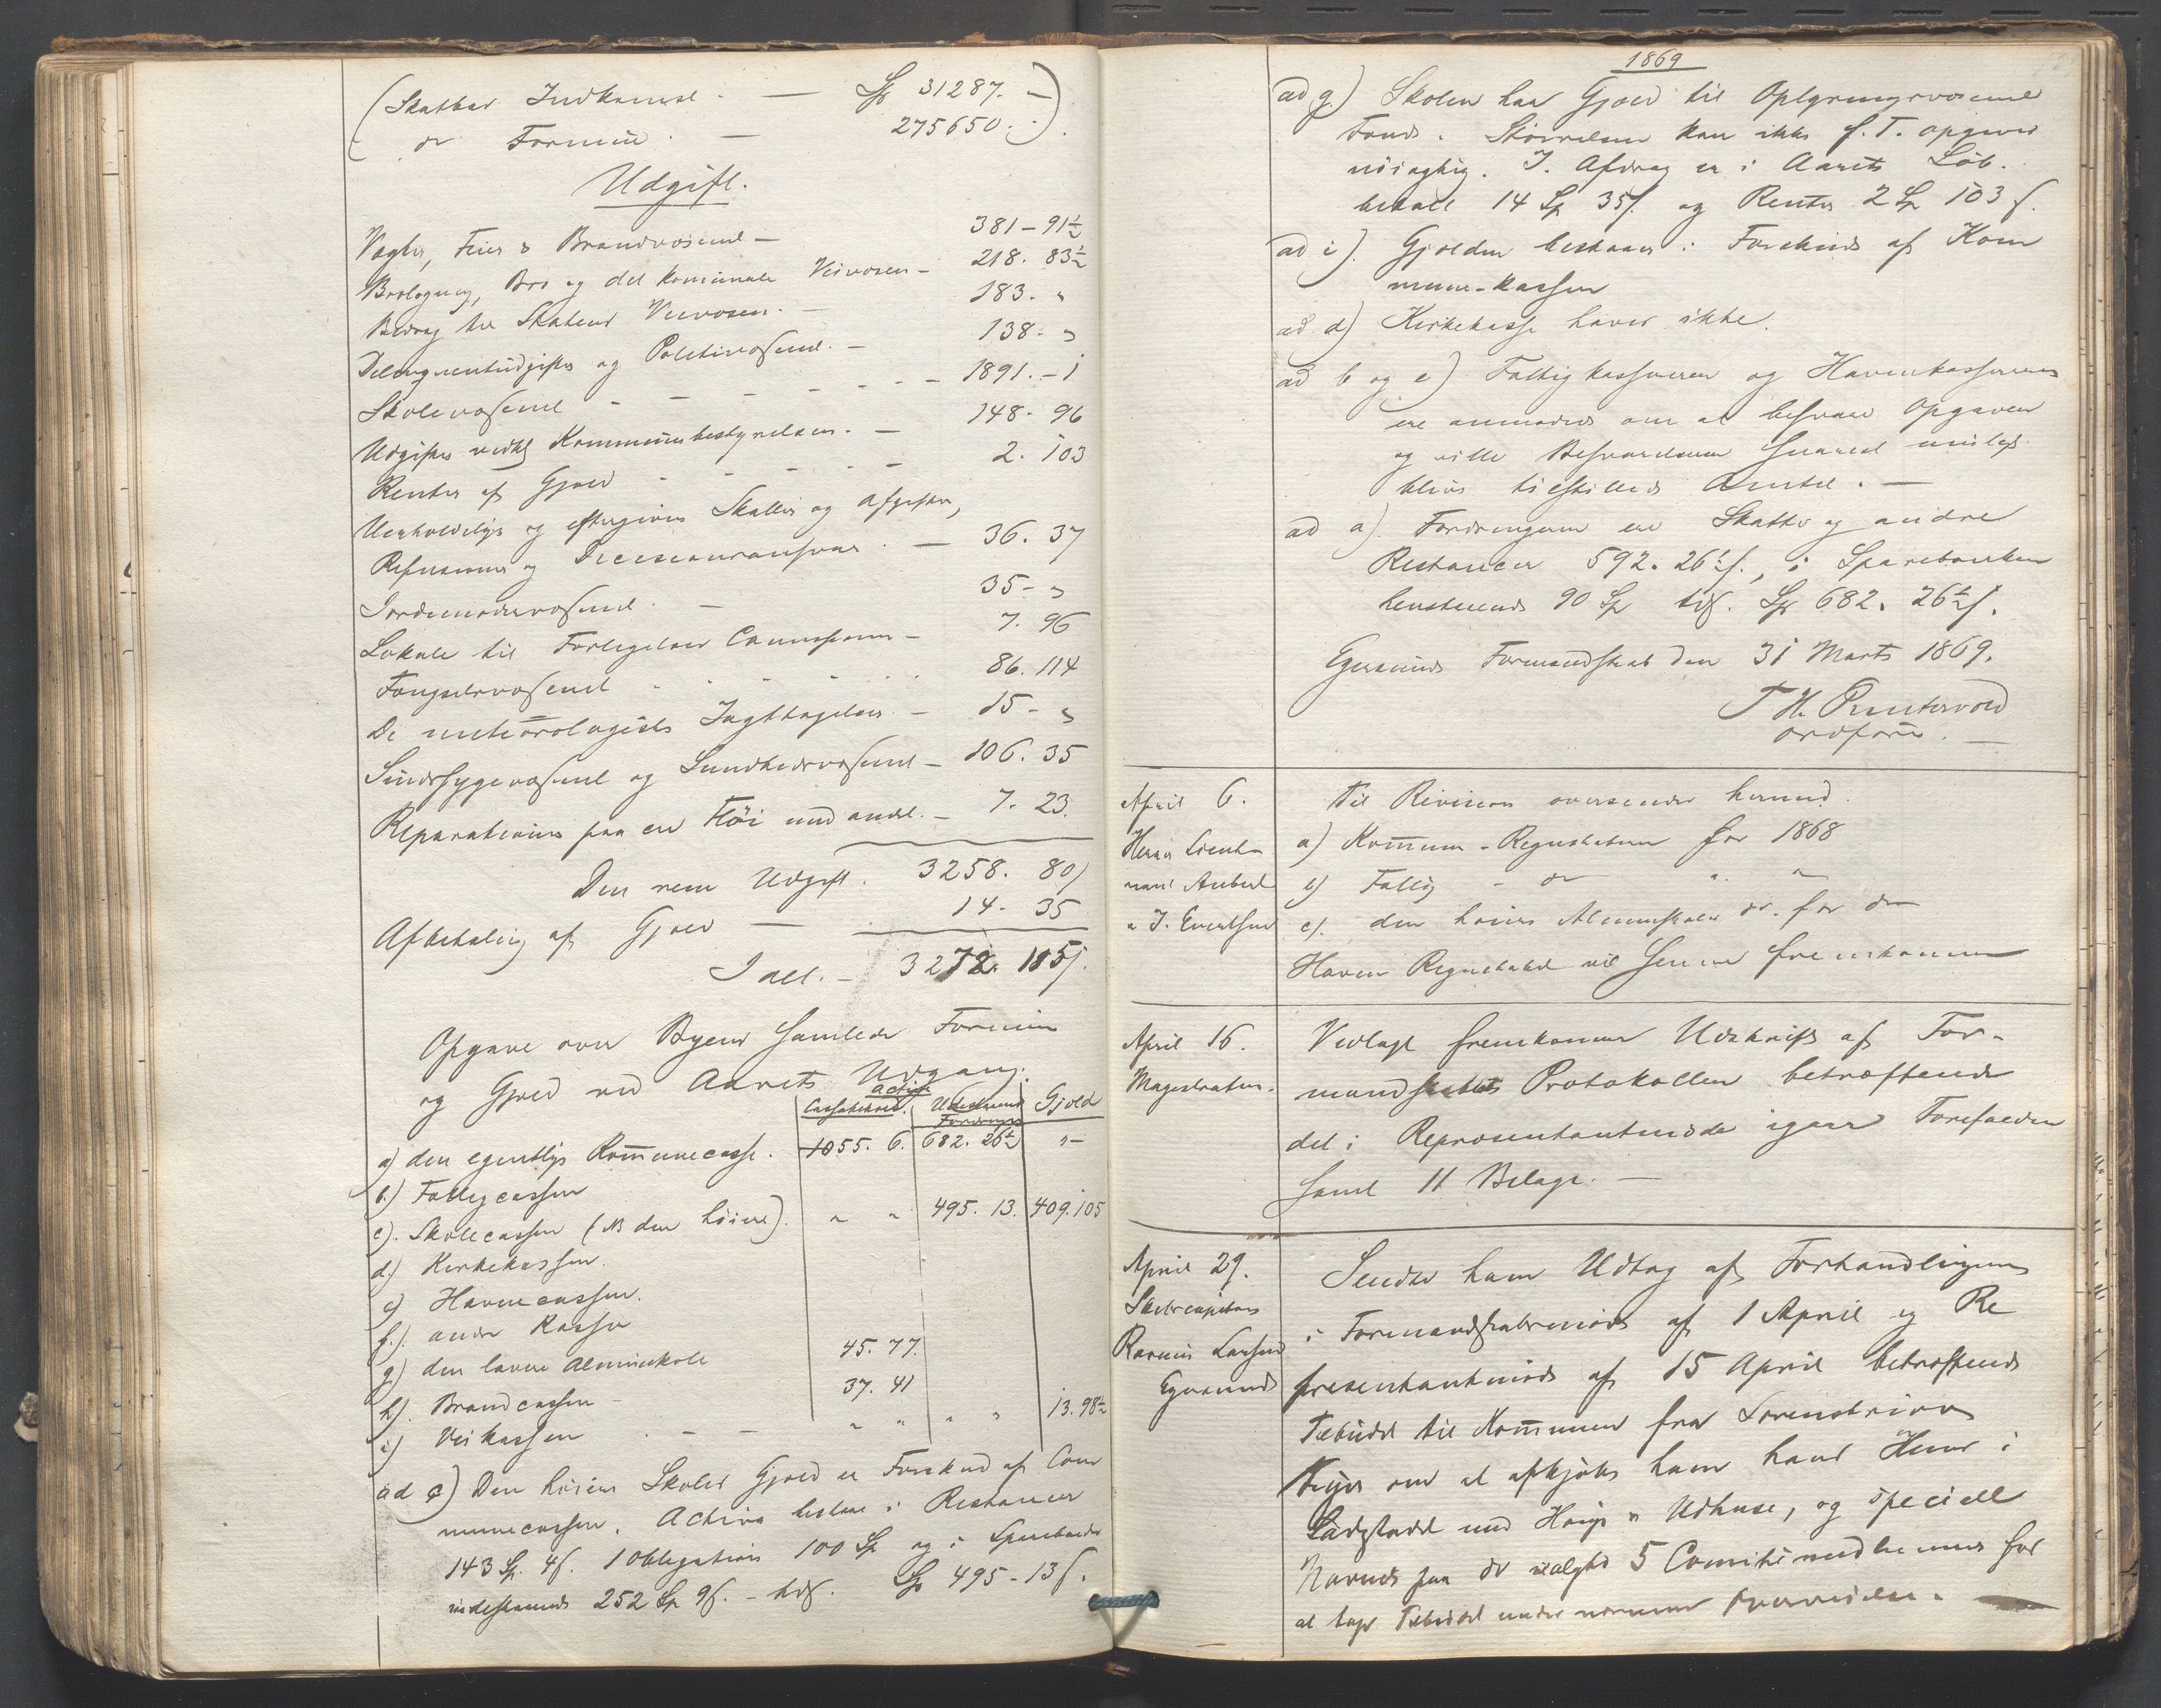 (Skatbar Indkomst. — Sp 31287. –)
( do Formue. — 275650.–).
Udgift.
Vægter, Feier & Brandvæsenet — 381–91½
Brolægning, Bro og det kommunale Veivæsen — 218. 83½
Bidrag til Statens Veivæsen. — 183. "
Delinqventudgifter og Politivæsenet. — 138– "
Skolevæsenet – – – – – – 1891.–1
Udgifter vedk Kommunebestyrelsen. — 148– 96
Renter af Gjæld – – – – – 2. 103
Uerholdelige og eftergivne Skatter og Afgifter,
Refusioner og Decisionsansvar. — 36. 37
Jordemodervæsenet. — 35– "
Lokale til Forligelses Commission — 7. 96
Fængselsvæsenet . . . . . . 86. 114
De meteorologiske Iagttagelser. — 15– "
Sindssygevæsenet og Sundhedsvæsenet — 106. 35
Reparationer paa en Høi med andet. — 7. 23.
Den rene Udgift. 3258. 80
Afbetaling af Gjæld — 14– 35
I alt. — 3272. 115
Opgave over Byens samlede Formue
og Gjæld ved Aarets Udgang.
Activa
Cassabehold. Udestaaende Fordringer Gjæld
a) den egentlige Kommunecasse. 1055. 6. 682. 26½ "–
b.) Fattigcassen
c). Skolecassen (NB den høiere). " " 495. 13. 409. 105
d.) Kirkekassen.
e) Havnecassen.
f.). andre Kasser
g) den lavere Almueskole 45. 77.
h). Brandcassen – 37. 41
i) Veikassen . – – " " " " 13. 98½
ad c) Den høiere Skoles Gjæld er Forskud af Com
munecassen. Activa bestaar i Restancer
143 Sp. 4ß. 1 Obligation 100 Sp og i Sparebanken
indestaaende 252 Sp 9ß. – tils. Sp 495–13ß.
1869
ad g.) Skolen har Gjæld til Oplysningsvæsenets
Fond. Størrelsen kan ikke f. T. opgives
nøiagtig. I Afdrag er i Aarets Løb
betalt 14 Sp 35ß. og Renter 2 Sp 103 ß.
ad i). Gjælden bestaaer i Forskud af Kom
mune-kassen
ad d) Kirkekasse haves ikke.
ad b og e) Fattigkassereren og Havnekassereren
ere anmodede om at besvare Opgaven
og ville Besvarelserne snarest muligt
blive tilstillede Amtet. —
ad a). Fordringerne ere Skatte og andre
Restancer 592. 26½ß., i Sparebanken
henstaaende 90 Sp tils. Sp 682. 26½ß.
Egersunds Formandskab den 31 Marts 1869.
T H. Puntervold
ordfører. —
April 6.
Herrer Lieut–
nant Aubert
& J. Evertsen
Til Revision oversendes hermed
a) Kommune-Regnskaberne for 1868
b) Fattig – do " "
c). den høiere Almueskoles do. for do
Havne Regnskabet vil senere fremkomme
April 16.
Magistraten.
Vedlagt fremkommer Udskrift af For–
mandskabets Protokollen betræffende
det i Repræsentantmøde igaar Forefaldne
samt 11 Bilage. —
April 29.
Skibscapitain
Rasmus Larsen
Egersund
Sendes ham Udtog af Forhandlingerne
i Formandskabsmøde af 1 April og Re
presentantmøde af 15 April betræffende
Tilbudet til Kommunen fra Sorenskriver
om at afkjøbe ham hans Huus i
med Hauge & Udhuse, og specielt
Navnet paa de valgte 5 Comitemedlemmer for
at tage Tilbudet under nærmere Overveielse. —